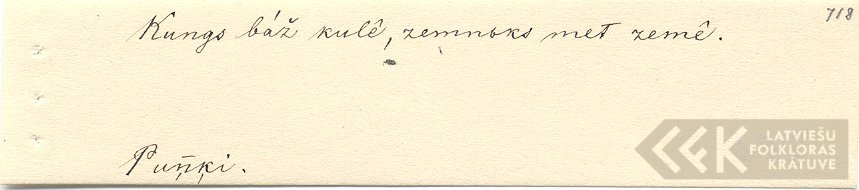 718
Kungs bāž kulê, zemnoks met zemê.
Puņ̄ķi.
LATVIEŠU
FOLKLORAS
KRĀTUVE